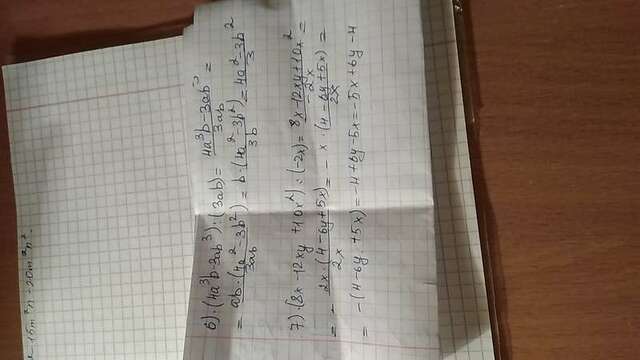 15m²n - 20m²n².
6) (4a³b - 3ab³) : (3ab) = 4a³b - 3ab³ / 3ab =
= ab · (4a² - 3b²) / 3ab = b · (4a² - 3b²) / 3b = 4a² - 3b² / 3
7) (8x - 12xy + 10x²) : (-2x) = 8x - 12xy + 10x² / -2x =
= - 2x · (4 - 6y + 5x) / 2x = - x · (4 - 6y + 5x) / 2x =
= -(4 - 6y + 5x) = -4 + 6y - 5x = -5x + 6y - 4